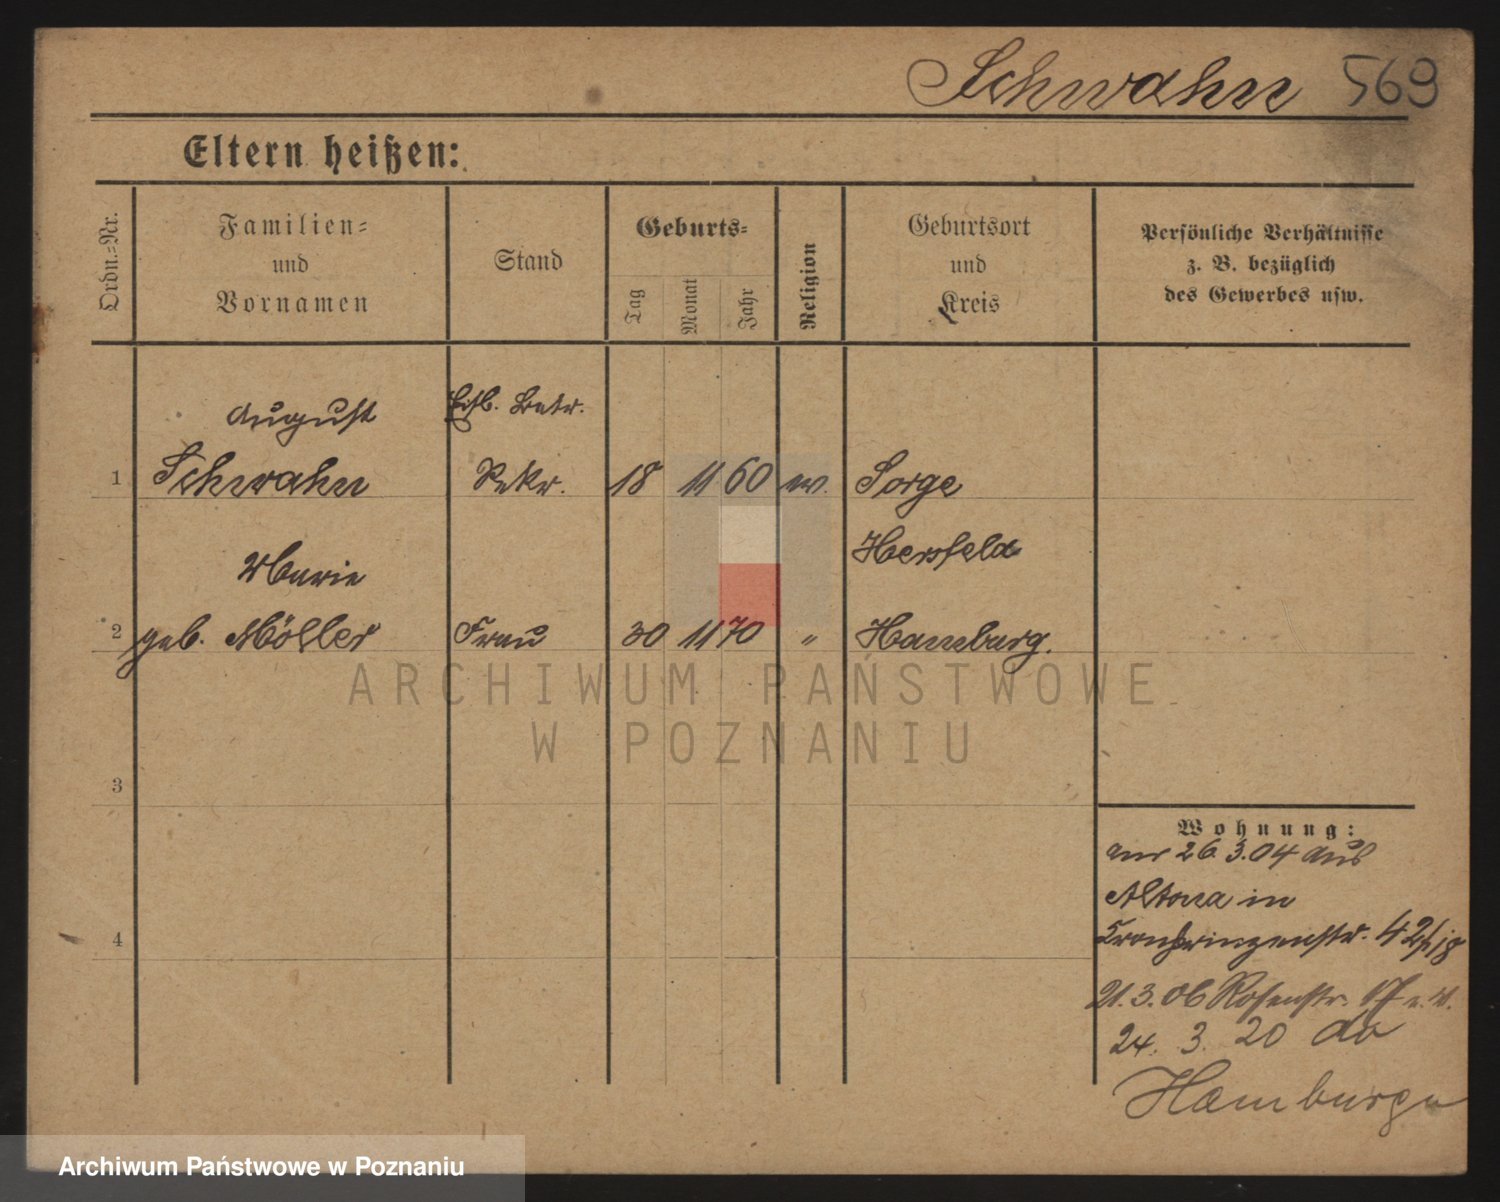 Schwahn 569
Eltern heißen:
Ordn.=Nr.
Familien=
und
Vornamen
Stand
Geburts=
Tag
Monat
Jahr
Religion
Geburtsort
und
Kreis
Persönliche Verhältnisse
z. B. bezüglich
des Gewerbes usw.
August
1 Schwahn Sekr. 18 11 60 ev. Sorge
Hersfeld
Marie
2 geb. Möller Frau 30 11 70 " Hamburg.
ARCHIWUM PAŃSTWOWE
W POZNANIU
3
4
Wohnung:
am 26.3.04 aus
Altona in
Kronprinzenstr.
21.3.06 Rosenstr. 17
24. 3. 20
Hamburg
Archiwum Państwowe w Poznaniu